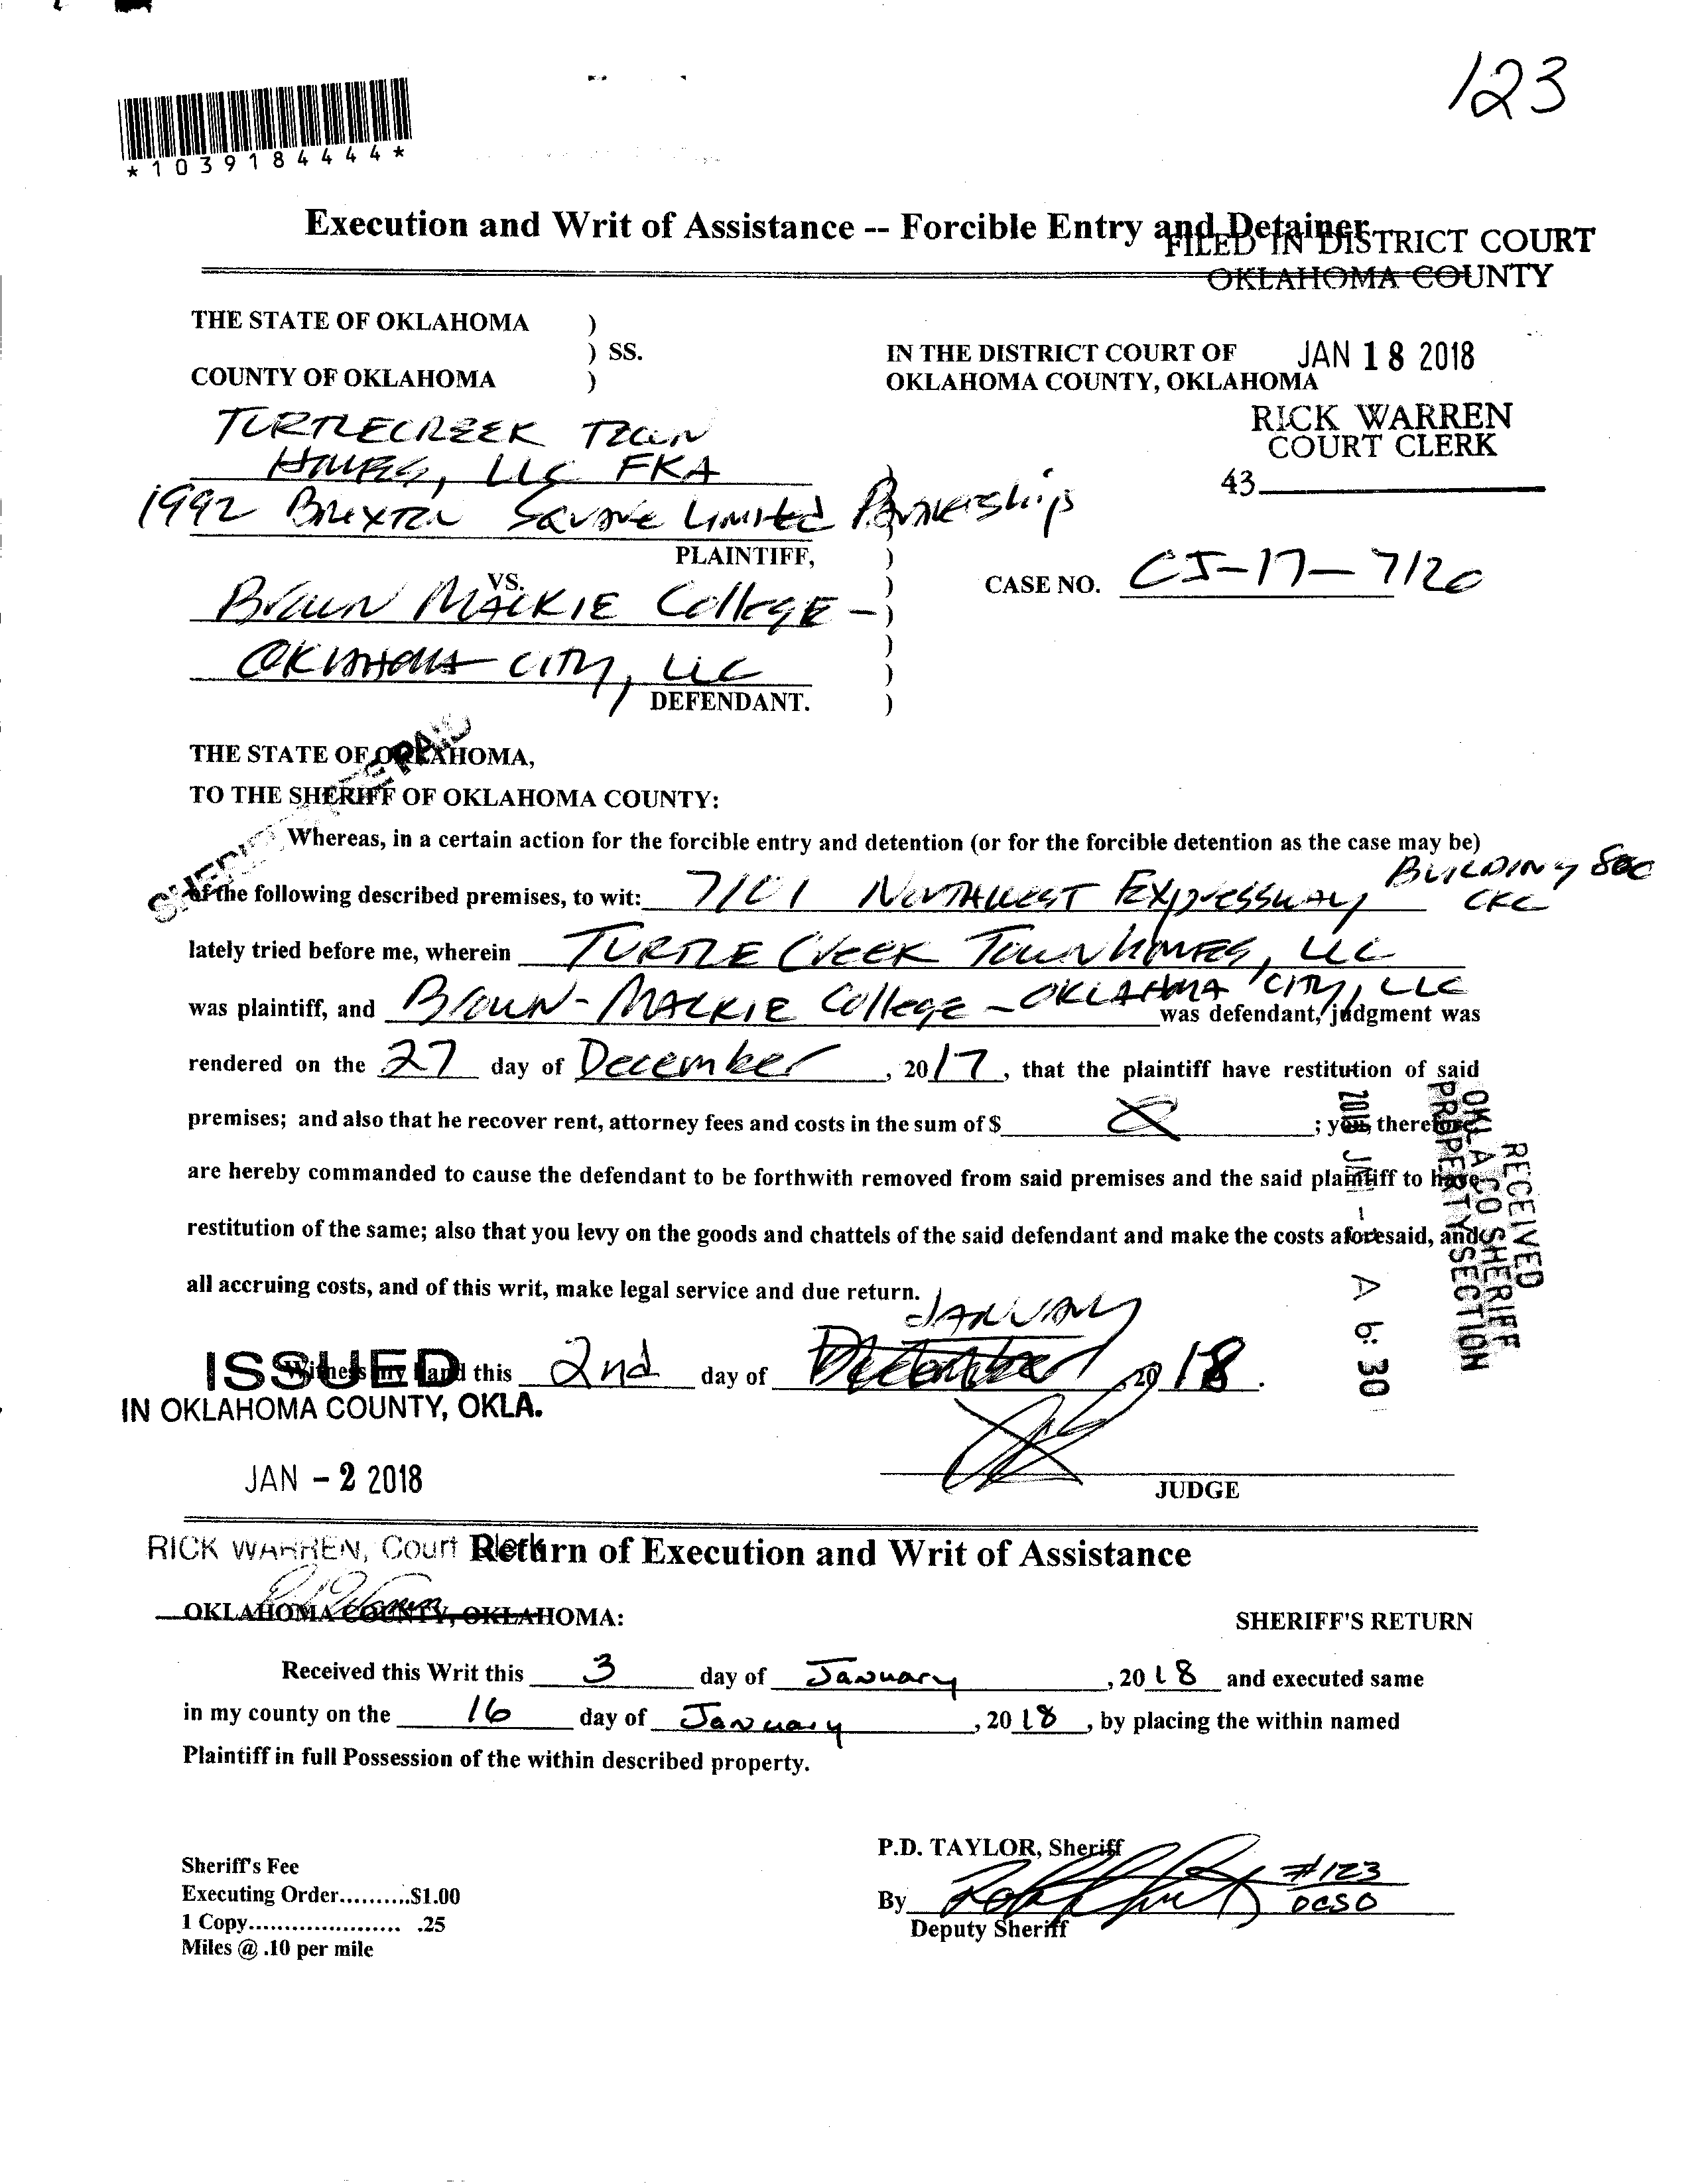 123
*1039184444*
Execution and Writ of Assistance -- Forcible Entry and Detainer
FILED IN DISTRICT COURT
OKLAHOMA COUNTY
THE STATE OF OKLAHOMA )
) SS.
COUNTY OF OKLAHOMA )
IN THE DISTRICT COURT OF
OKLAHOMA COUNTY, OKLAHOMA
JAN 18 2018
RICK WARREN
COURT CLERK
43
TURTLECREEK TOWN
HOMES, LLC FKA
1992 BRIXTON SQUARE LIMITED Partnerships
PLAINTIFF, )
VS. )
BROWN MACKIE COllEGE - )
)
OKLAHOMA CITY, LLC )
DEFENDANT. )
CASE NO. CJ-17-7120
THE STATE OF OKLAHOMA,
TO THE SHERIFF OF OKLAHOMA COUNTY:
PAID
Whereas, in a certain action for the forcible entry and detention (or for the forcible detention as the case may be)
of the following described premises, to wit: 7101 NORTHWEST EXPRESSWAY, BUILDING 800
OKC
lately tried before me, wherein TURTLE CREEK TOWNHOMES, LLC
was plaintiff, and BROWN-MACKIE COllege - OKLAHOMA CITY, LLC was defendant, judgment was
rendered on the 27 day of December, 2017, that the plaintiff have restitution of said
premises; and also that he recover rent, attorney fees and costs in the sum of $ ; you, therefore,
are hereby commanded to cause the defendant to be forthwith removed from said premises and the said plaintiff to have
restitution of the same; also that you levy on the goods and chattels of the said defendant and make the costs aforesaid, and
all accruing costs, and of this writ, make legal service and due return.
RECEIVED
OKLA CO SHERIFF
PROPERTY SECTION
JANUARY
Witness my hand this 2nd day of December, 2018.
ISSUED
IN OKLAHOMA COUNTY, OKLA.
JAN - 2 2018
JUDGE
RICK WARREN, Court Clerk
Return of Execution and Writ of Assistance
OKLAHOMA COUNTY, OKLAHOMA:
SHERIFF'S RETURN
Received this Writ this 3 day of January, 2018 and executed same
in my county on the 16 day of January, 2018, by placing the within named
Plaintiff in full Possession of the within described property.
P.D. TAYLOR, Sheriff
Sheriff's Fee
Executing Order..........$1.00
1 Copy..................... .25
Miles @ .10 per mile
By #123
OCSO
Deputy Sheriff